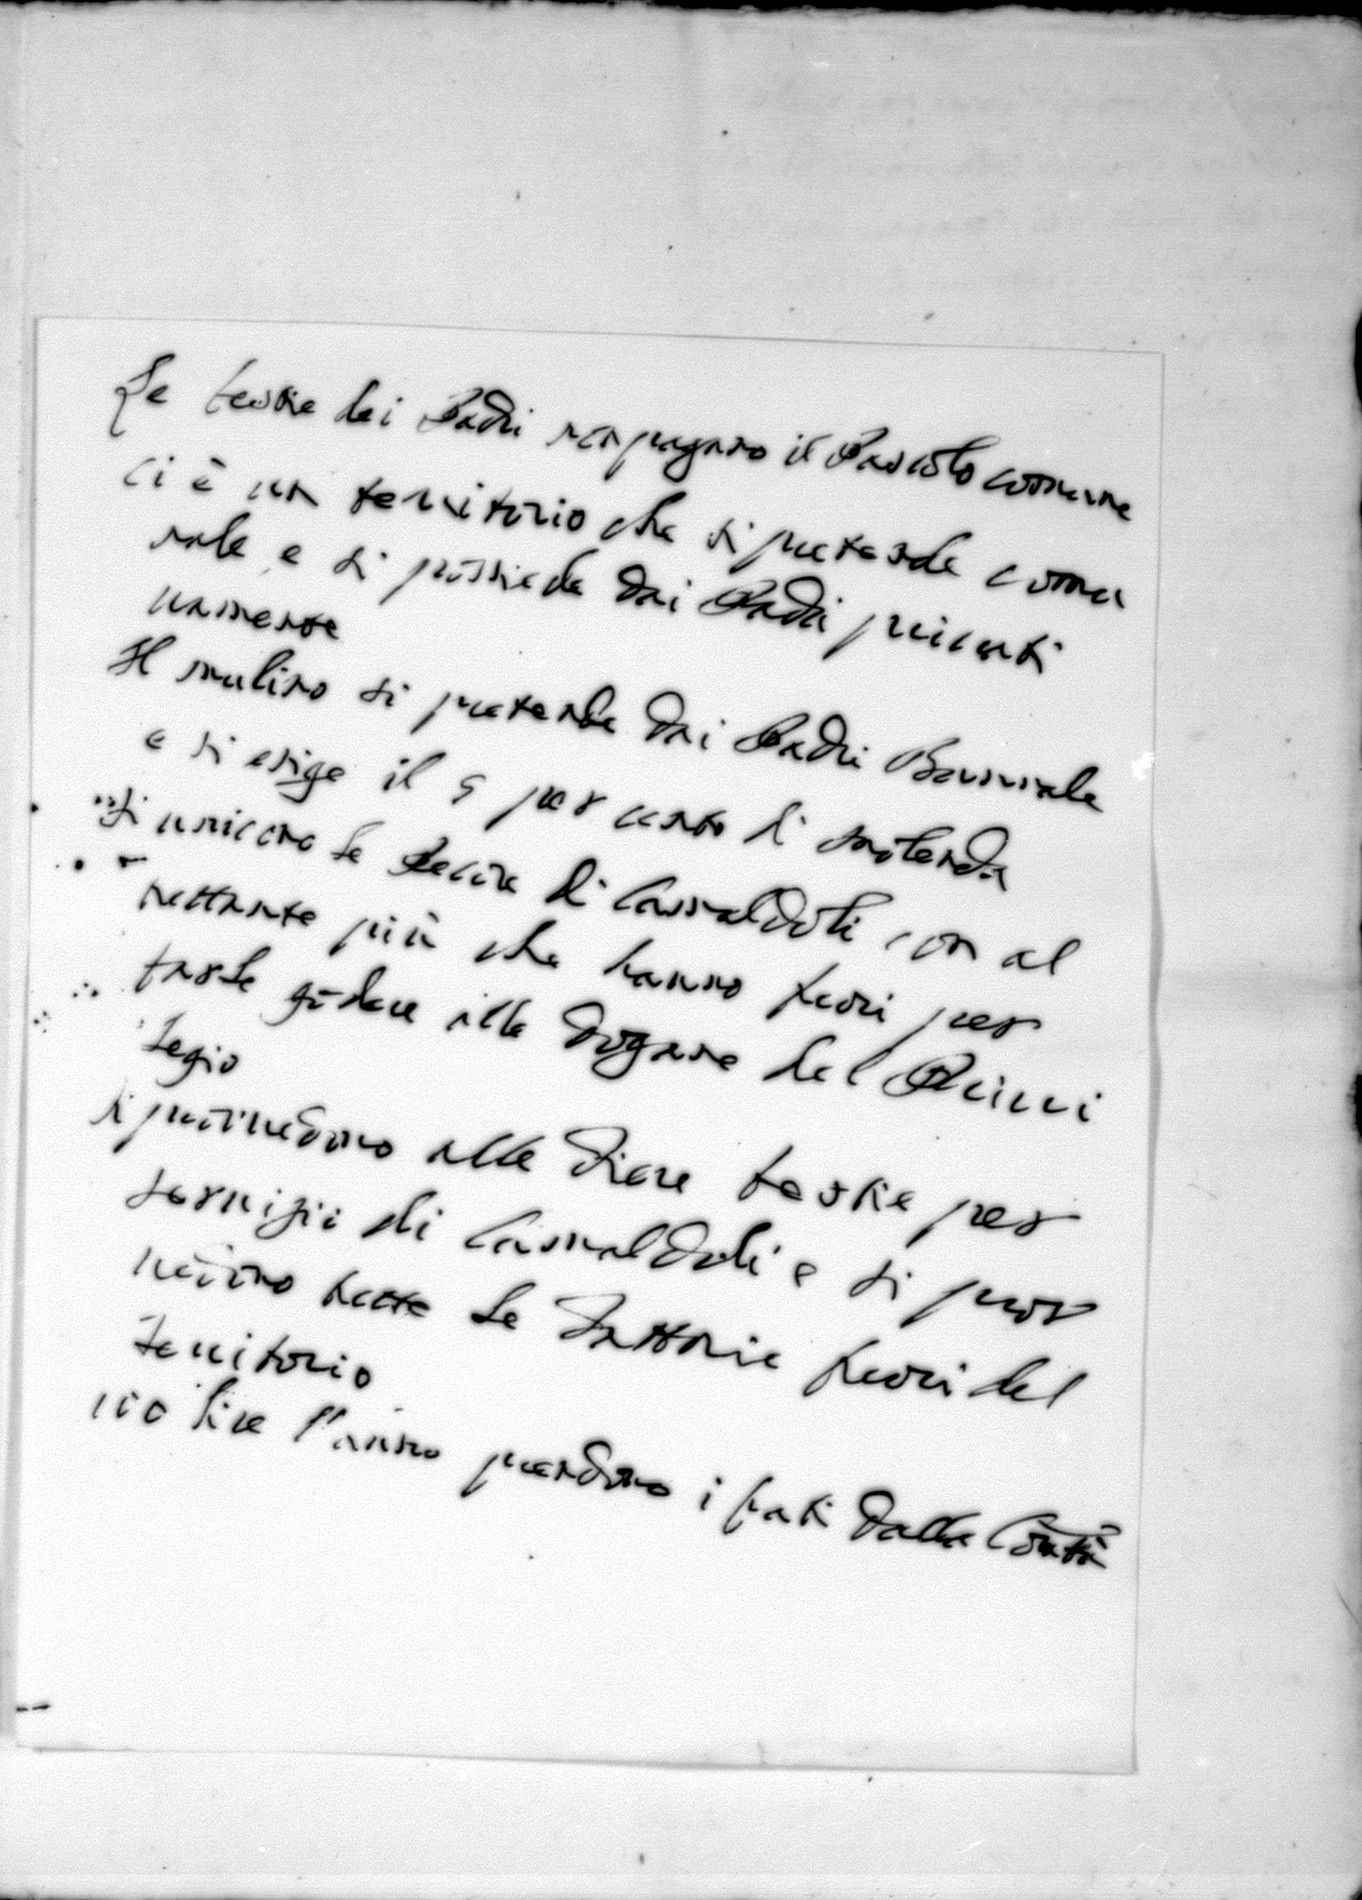 Le bestie dei Padri non pagano il Pascolo comune
ci è un territorio che si pretende comu
nale, e si possiede dai Padri privati
vamente
Il mulino si pretende dai Padri Baronale
e si esige il 5 per cento di molenda
si uniscono le pecore di Camaldoli, con al
trettante più che hanno fuori per
farle godere alle Dogane del Privi
legio
si provvedono alle Fiere bestie per
servizio di Camaldoli e si prov
vedono tutte le Fattorie fuori del
Territorio
100 lire l'anno prendono i frati dalla Cõntà